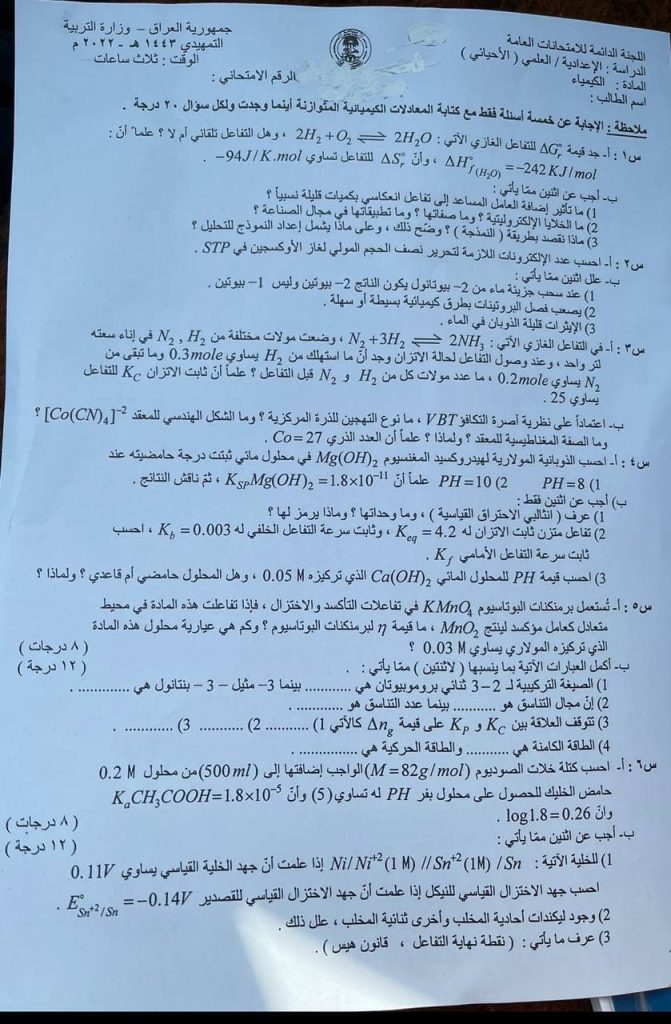 جمهورية العراق – وزارة التربية
التمهيدي ١٤٤٣ هـ - ٢٠٢٢ م
الوقت : ثلاث ساعات
الرقم الامتحاني :
اللجنة الدائمة للامتحانات العامة
الدراسة : الإعدادية / العلمي ( الأحيائي )
المادة : الكيمياء
اسم الطالب :
ملاحظة : الإجابة عن خمسة أسئلة فقط مع كتابة المعادلات الكيميائية المتوازنة أينما وجدت ولكل سؤال ٢٠ درجة .
س١ : أ- جد قيمة ΔG°r للتفاعل الغازي الآتي : 2H₂ + O₂ ⇌ 2H₂O ، وهل التفاعل تلقائي أم لا ؟ علماً أنّ :
ΔH°f(H₂O) = –242 KJ/mol ، وأنّ ΔS°r للتفاعل تساوي –94J/K.mol .
ب- أجب عن اثنين ممّا يأتي :
1) ما تأثير إضافة العامل المساعد إلى تفاعل انعكاسي بكميات قليلة نسبياً ؟
2) ما الخلايا الإلكتروليتية ؟ وما صفاتها ؟ وما تطبيقاتها في مجال الصناعة ؟
3) ماذا نقصد بطريقة ( النمذجة ) ؟ وضّح ذلك ، وعلى ماذا يشمل إعداد النموذج للتحليل ؟
س٢ : أ- احسب عدد الإلكترونات اللازمة لتحرير نصف الحجم المولي لغاز الأوكسجين في STP .
ب- علل اثنين ممّا يأتي :
1) عند سحب جزيئة ماء من 2– بيوتانول يكون الناتج 2– بيوتين وليس 1– بيوتين .
2) يصعب فصل البروتينات بطرق كيميائية بسيطة أو سهلة .
3) الإيثرات قليلة الذوبان في الماء .
س٣ : أ- في التفاعل الغازي الآتي : N₂ +3H₂ ⇌ 2NH₃ ، وضعت مولات مختلفة من N₂ , H₂ في إناء سعته
لتر واحد ، وعند وصول التفاعل لحالة الاتزان وجد أنّ ما استهلك من H₂ يساوي 0.3mole وما تبقى من
N₂ يساوي 0.2mole ، ما عدد مولات كل من H₂ و N₂ قبل التفاعل ؟ علماً أنّ ثابت الاتزان KC للتفاعل
يساوي 25 .
ب- اعتماداً على نظرية آصرة التكافؤ VBT ، ما نوع التهجين للذرة المركزية ؟ وما الشكل الهندسي للمعقد [Co(CN)₄]⁻² ؟
وما الصفة المغناطيسية للمعقد ؟ ولماذا ؟ علماً أن العدد الذري Co= 27 .
س٤ : أ- احسب الذوبانية المولارية لهيدروكسيد المغنسيوم Mg(OH)₂ في محلول مائي ثبتت درجة حامضيته عند
1) PH=8 2) PH=10 علماً أنّ KSP Mg(OH)₂ =1.8×10⁻¹¹ ، ثمّ ناقش النتائج .
ب) أجب عن اثنين فقط :
1) عرف ( انثالبي الاحتراق القياسية ) ، وما وحداتها ؟ وماذا يرمز لها ؟
2) تفاعل متزن ثابت الاتزان له Keq = 4.2 ، وثابت سرعة التفاعل الخلفي له Kb = 0.003 ، احسب
ثابت سرعة التفاعل الأمامي Kf .
3) احسب قيمة PH للمحلول المائي Ca(OH)₂ الذي تركيزه 0.05 M ، وهل المحلول حامضي أم قاعدي ؟ ولماذا ؟
س٥ : أ- تُستعمل برمنكنات البوتاسيوم KMnO₄ في تفاعلات التأكسد والاختزال ، فإذا تفاعلت هذه المادة في محيط
متعادل كعامل مؤكسد لينتج MnO₂ ، ما قيمة η لبرمنكنات البوتاسيوم ؟ وكم هي عيارية محلول هذه المادة
الذي تركيزه المولاري يساوي 0.03 M ؟ ( ٨ درجات )
ب- أكمل العبارات الآتية بما يناسبها ( لاثنتين ) ممّا يأتي : . ( ١٢ درجة )
1) الصيغة التركيبية لـ 2 – 3 ثنائي بروموبيوتان هي ............ بينما 3– مثيل – 3 – بنتانول هي ............ .
2) إنّ مجال التناسق هو ............ بينما عدد التناسق هو ............ .
3) تتوقف العلاقة بين KC و KP على قيمة Δng كالآتي 1) .......... 2) .......... 3) .......... .
4) الطاقة الكامنة هي .......... والطاقة الحركية هي ............ .
س٦ : أ- احسب كتلة خلات الصوديوم (M = 82g/mol) الواجب إضافتها إلى (500ml) من محلول 0.2 M
حامض الخليك للحصول على محلول بفر PH له تساوي (5) وأنّ KaCH₃COOH=1.8×10⁻⁵
وانّ log1.8 = 0.26 . ( ٨ درجات )
ب- أجب عن اثنين ممّا يأتي : ( ١٢ درجة )
1) للخلية الآتية : Ni/Ni⁺²(1 M) //Sn⁺²(1M) /Sn إذا علمت أنّ جهد الخلية القياسي يساوي 0.11V
احسب جهد الاختزال القياسي للنيكل إذا علمت أنّ جهد الاختزال القياسي للقصدير E°Sn⁺²/Sn =–0.14V .
2) وجود ليكندات أحادية المخلب وأخرى ثنائية المخلب ، علل ذلك .
3) عرف ما يأتي : ( نقطة نهاية التفاعل ، قانون هيس ) .